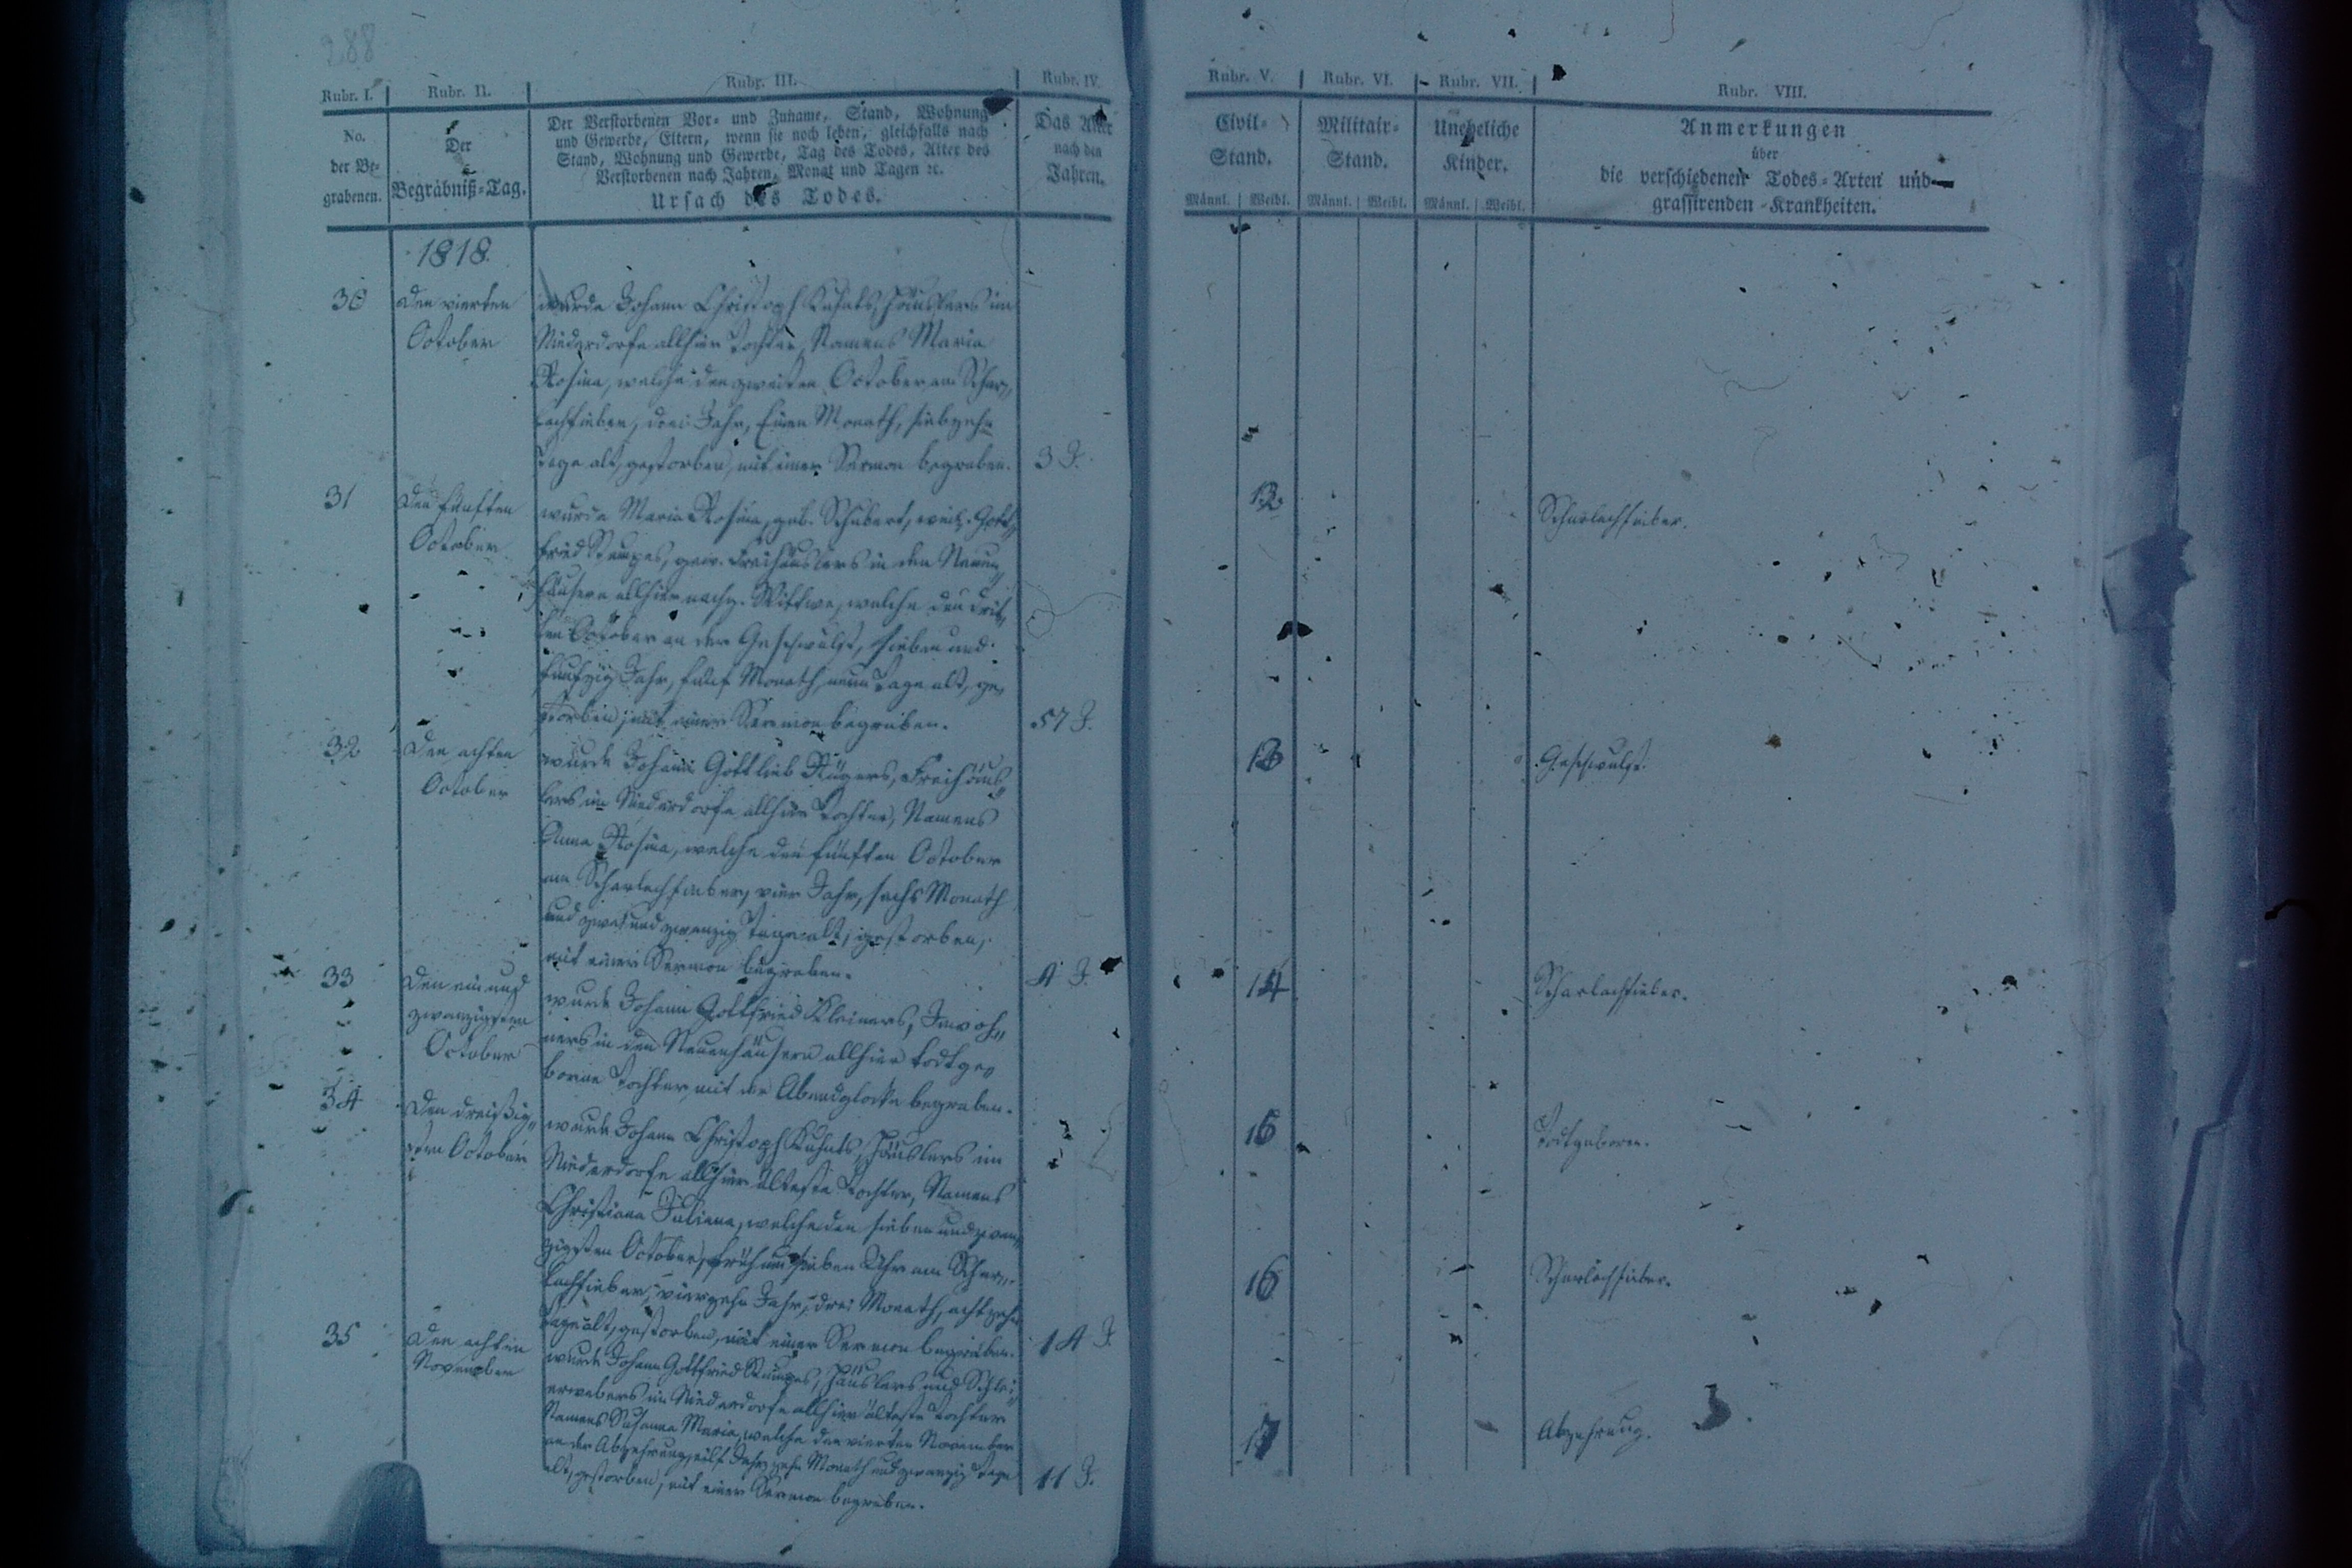 288
Rubr. I.
Rubr. II.
Rubr. III.
Rubr. IV.
No.
der Be-
grabenen.
Der
Begräbniß-Tag.
Der Verstorbenen Vor- und Zuname, Stand, Wohnung
und Gewerbe, Eltern, wenn sie noch leben, gleichfalls nach
Stand, Wohnung und Gewerbe, Tag des Todes, Alter des
Verstorbenen nach Jahren, Monat und Tagen ꝛc.
Ursach des Todes.
Das Alter
nach den
Jahren.
1818.
30
den vierten
October
wurde Johann Christoph Kuhnts, Häuslers im
Niederdorfe allhier Tochter, Namens Maria
Rosina, welche den zweiten October am Schar-
lachfieber, drei Jahr, Einen Monath, siebzehn
Tage alt, gestorben, mit einer Sermon begraben.
3 J.
31
den fünften
October
wurde Maria Rosina, geb. Schubert, weil. Gott-
fried Stumpes, gew. Freihäuslers in den Neuen-
häusern allhier nachg. Wittwe, welche den drit-
ten October an der Geschwulst, sieben und
funfzig Jahr, fünf Monath, neun Tage alt, ge-
storben, mit einer Sermon begraben.
57 J.
32
den achten
October
wurde Johann Gottlieb Rügers, Freihäus-
lers im Niederdorfe allhier Tochter, Namens
Anna Rosina, welche den fünften October
am Scharlachfieber, vier Jahr, sechs Monath
und zwei und zwanzig Tage alt, gestorben,
mit einer Sermon begraben.
4 J.
33
den ein und
zwanzigsten
October
wurde Johann Gottfried Kleiners, Inwoh-
ners in den Neuenhäusern allhier todtge-
borne Tochter mit der Abendglocke begraben.
34
den dreißig-
sten October
wurde Johann Christoph Kuhnts, Häuslers im
Niederdorfe allhier älteste Tochter, Namens
Christiana Juliana, welche den sieben und zwan-
zigsten October, früh um sieben Uhr am Schar-
lachfieber, vierzehn Jahr, drei Monath, achtzehn
Tage alt, gestorben, mit einer Sermon begraben.
14 J.
35
den achten
November
wurde Johann Gottfried Stumpes, Häuslers und Schlei-
erwebers im Niederdorfe allhier älteste Tochter
Namens Susanna Maria, welche den vierten November
an der Abzehrung, eilf Jahr, zehn Monath und zwanzig Tage
alt, gestorben, mit einer Sermon begraben.
11 J.
Rubr. V.
Rubr. VI.
Rubr. VII.
Rubr. VIII.
Civil-
Stand.
Männl.
Weibl.
Militair-
Stand.
Männl.
Weibl.
Uneheliche
Kinder.
Männl.
Weibl.
Anmerkungen
über
die verschiedenen Todes-Arten und
grassirenden Krankheiten.
12.
Scharlachfieber.
13
Geschwulst.
14
Scharlachfieber.
15
Todtgeboren.
16
Scharlachfieber.
17
Abzehrung.